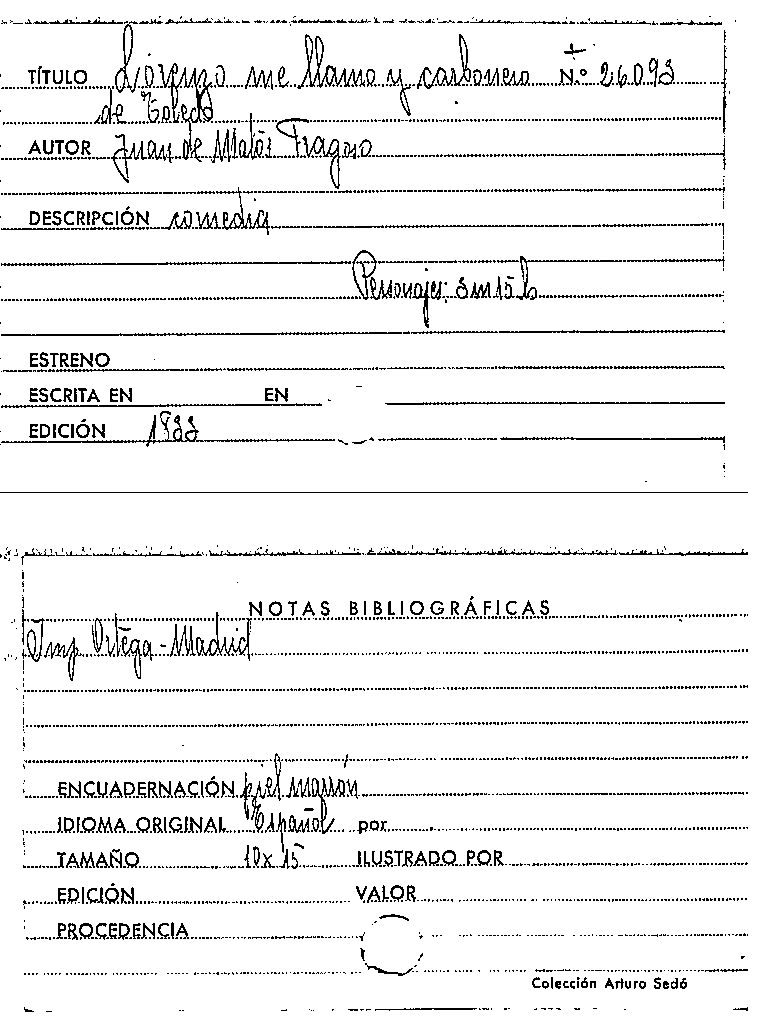 TÍTULO Lorenzo me llamo y carbonero N.º 26.093
de Toledo
AUTOR Juan de Matos Fragoso
DESCRIPCIÓN comedia
Personajes: 3m 15h
ESTRENO
ESCRITA EN EN
EDICIÓN
NOTAS BIBLIOGRÁFICAS
Imp Ortega - Madrid
ENCUADERNACIÓN piel marrón
IDIOMA ORIGINAL Español por
TAMAÑO 10x15 ILUSTRADO POR
EDICIÓN VALOR
PROCEDENCIA
Colección Arturo Sedó